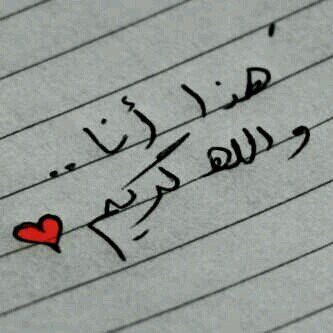 هٰذا أنا ..
والله كريم